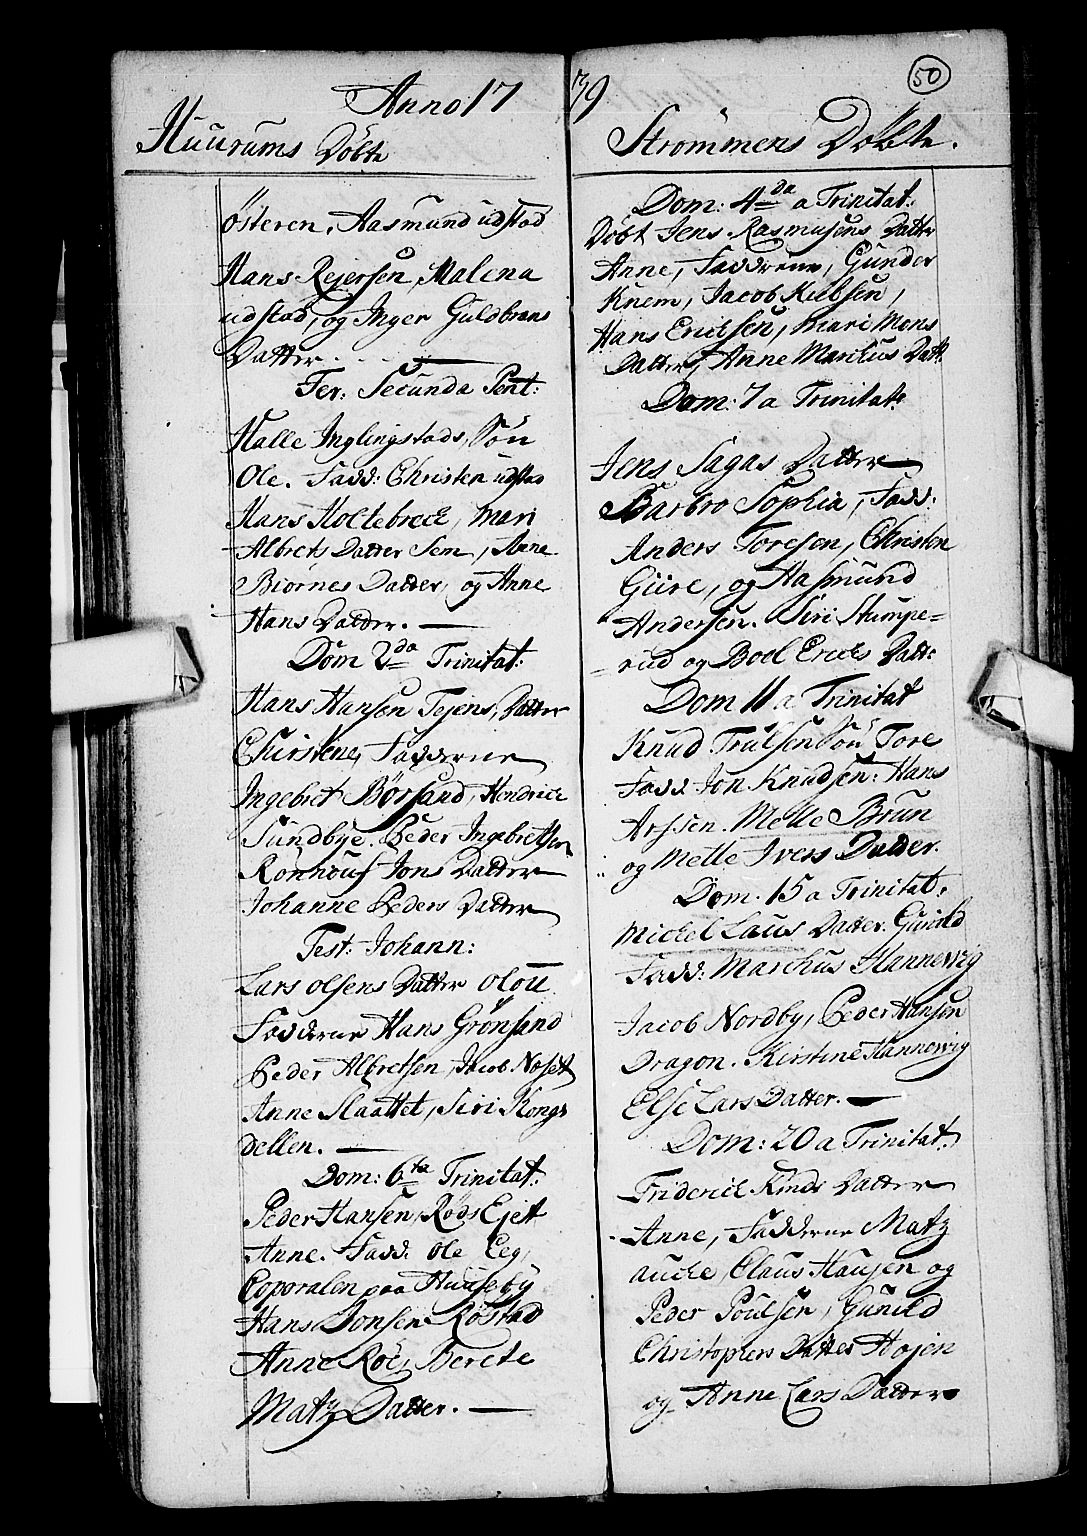 50
Anno 17 39
Huurums Döbte
Österen, Aasmund udstad
Hans Rejersen, Malena
udstad, og Inger Guldbrans
Datter.
Fer: Secunda Pent:
Halle Inglingstads, Sön
Ole. Fadd: Christen udstad
Hans Holtebreck, Mari
Albrets Datter Sem, Anne
Biørnes Datter, og Anne
Hans Datter.
Dom 2da Trinitat:
Hans Hansøn Tejens, Datter
Christene, Fadderne
Ingebret Börsand, Hendrick
Sundbye. Peder Ingebretsen
Rönnouf Jons Datter
Johanne Peders Datter
Fest: Johann:
Lars Olsens Datter Olou
Fadderne Hans Grönsand
Peder Albretsen, Jacob Noset
Anne Slaattet, Siri Kongs
dellen.
Dom: 6ta Trinitat:
Peder Hansen, Røds Ejet
Anne. Fadd: Ole Eeg,
Coporalen paa Huuseby
Hans Jonsen Röstad
Anne Röe, Berete
Matz Datter.
Strømmens Dobte.
Dom: 4da a Trinitat:
Döbt Jens Rasmusens Datter
Anne, Fadderne, Gunder
Knem, Jacob Kielsen,
Hans Ericksen, Mari Mons
Datter, Anne Marchus Datt:
Dom: 7 a Trinitat:
Jens Sagas Datter
Barbro Sophia, Fadd:
Anders Toresen, Christen
Giire, og Aasmund
Andersen. Siri Stumpe=
=rud og Boel Ericks Datt:
Dom 11 a Trinitat
Knud Trulsen Sön Tore
Fadd Jon Knudsen: Hans
Arssen. Mette Brun
og Mette Ivers Datter.
Dom. 15 a Trinitat.
Mickel Laus Datter. Gunild
Fadd: Marchus Hannevig
Jacob Nordby, Peder Hansen
Dragon. Kirstine Hannevig
Else Lars Datter.
Dom: 20 a Trinitat:
Friderick Kinds Datter
Anne, Fadderne Matz
aucke, Claus Hansen og
Peder Poulsen, Gunild
Christophers Datter Højen
og Anne Lars Datter